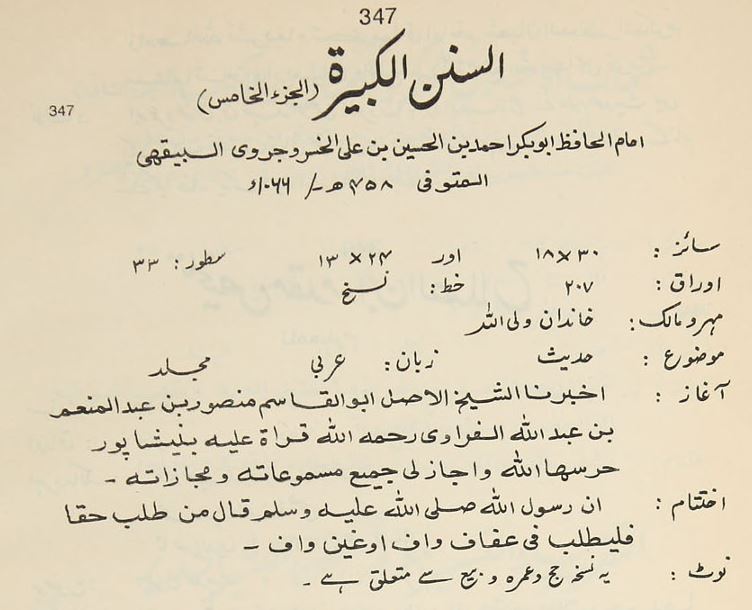 347
السنن الكبيرة (الجزء الخامس)
347
امام الحافظ ابو بكر احمد بن الحسين بن على الخسروجروى البيقهى
المتوفى ۴۵۸ھ / ۱۰۶۶ء
سائز : ۳۰×۱۸ اور ۲۴×۱۳ سطور : ۳۳
اوراق : ۲۰۷ خط : نسخ
مہر و مالک : خاندان ولی اللہ
موضوع : حدیث زبان : عربی مجلد
آغاز : اخبرنا الشيخ الاصل ابو القاسم منصور بن عبد المنعم
بن عبد الله الفراوى رحمه الله قراة عليه بنيشاپور
حرسها الله واجاز لى جميع مسموعاته و مجازاته ۔
اختتام : ان رسول الله صلى الله عليه وسلم قال من طلب حقا
فليطلب فى عفاف واف اوغين واف ۔
نوٹ : یہ نسخہ حج و عمرہ و بیع سے متعلق ہے ۔